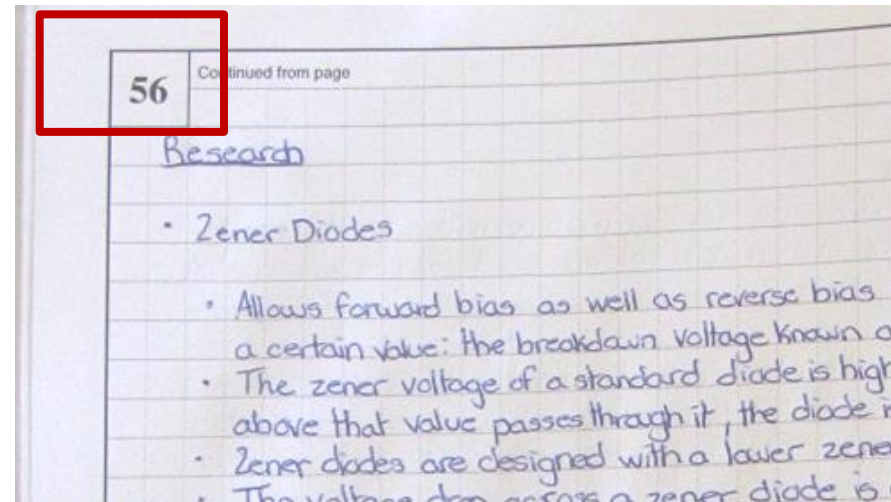 56
Continued from page
Research
· Zener Diodes
· Allows forward bias as well as reverse bias
a certain value: the breakdown voltage known
· The zener voltage of a standard diode is high
above that value passes through it, the diode
· Zener diodes are designed with a lower zene
· The voltage drop across a zener diode is